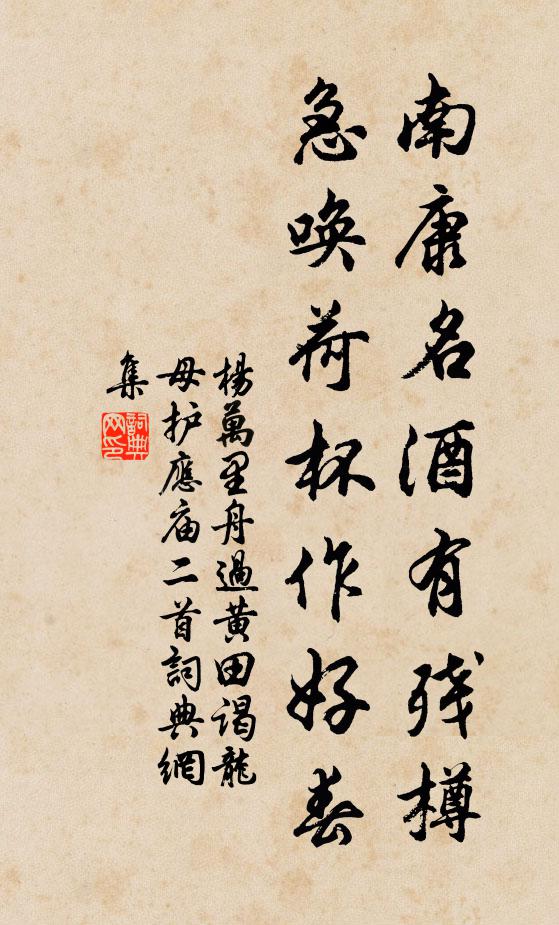 南康名酒有残樽
急唤荷杯作好春
楊萬里舟過黄田谒龍
母护應庙二首詞典網
集
詞典
网印